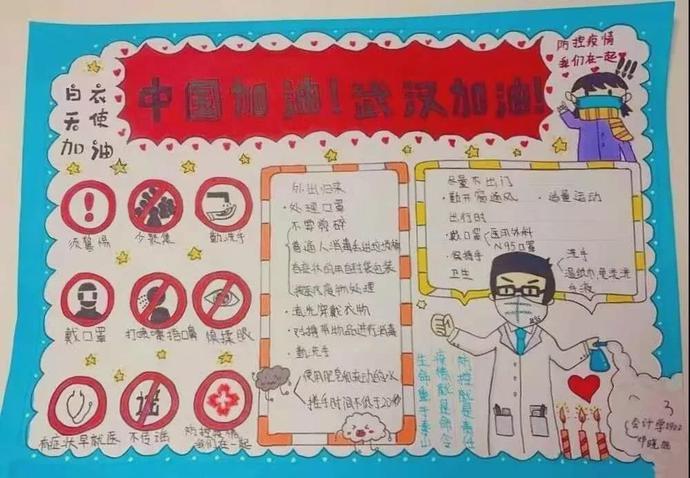 中国加油!武汉加油!
白衣
天使
加油
防控疫情
我们在一起
!!!
须警惕
少聚集
勤洗手
戴口罩
打喷嚏捂嘴
慎揉眼
有症状早就医
不传谣
防控疫情
我们在一起
外出归来
·处理口罩
不要弄碎
普通人消毒丢进垃圾桶
有症状的用自封袋包装
按医疗废物处理
·消毒穿戴衣物
·对携带物品进行消毒
·勤洗手
使用肥皂和流动的水
洗手时间不低于20秒
尽量不出门
·勤开窗通风 ·适量运动
出行时
·戴口罩
医用外科
N95口罩
·保持手
卫生
洗手
防控就是责任
疫情就是命令
生命重于泰山
会计学